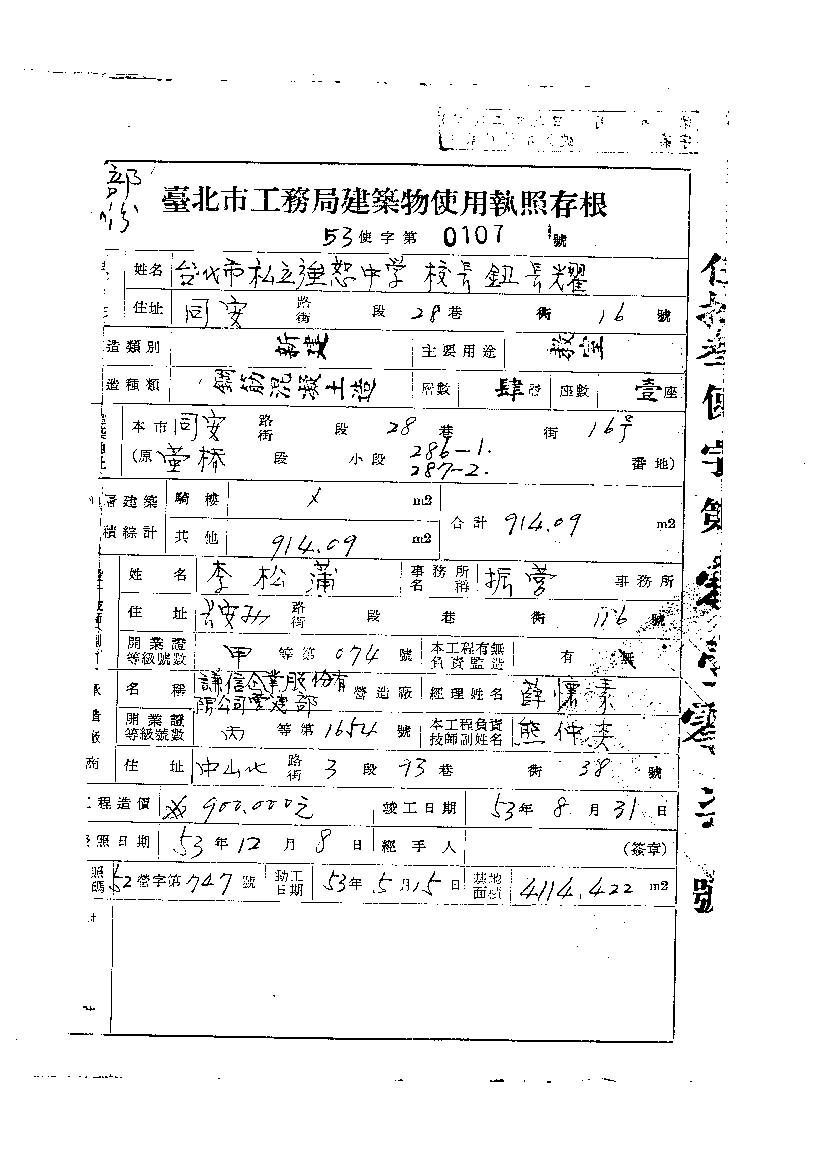 部份
臺北市工務局建築物使用執照存根
53使字第 0107 號
姓名 台北市私立強恕中学 校長 鈕長耀
住址 同安 路街 段 28巷 街 16 號
造類別 新建 主要用途 教室
造種類 鋼筋混凝土造 層數 肆層 座數 壹座
本市同安 路街 段 28巷 街 16号
(原 段 小段 286-1. 287-2. 番地)
層建築 騎樓 m2
積綜計 其他 914.09 m2 合計 914.09 m2
姓名 李松蒲 事務所名稱 振營 事務所
住址 路街 段 巷 街 116 號
開業證等級號數 甲 等第 074 號 本工程有無負責監造 有 無
名稱 謙信企業股份有限公司營建部 營造廠 經理姓名 薛懷
開業證等級號數 丙 等第 1654 號 本工程負責技師副姓名 熊仲
住址 中山北 路街 3 段 93巷 街 38 號
工程造價 900.000元 竣工日期 53年 8月31日
照日期 53年12月8日 經手人 (簽章)
照碼 52營字第747號 動工日期 53年5月15日 基地面積 4114.422 m2
使字第
號